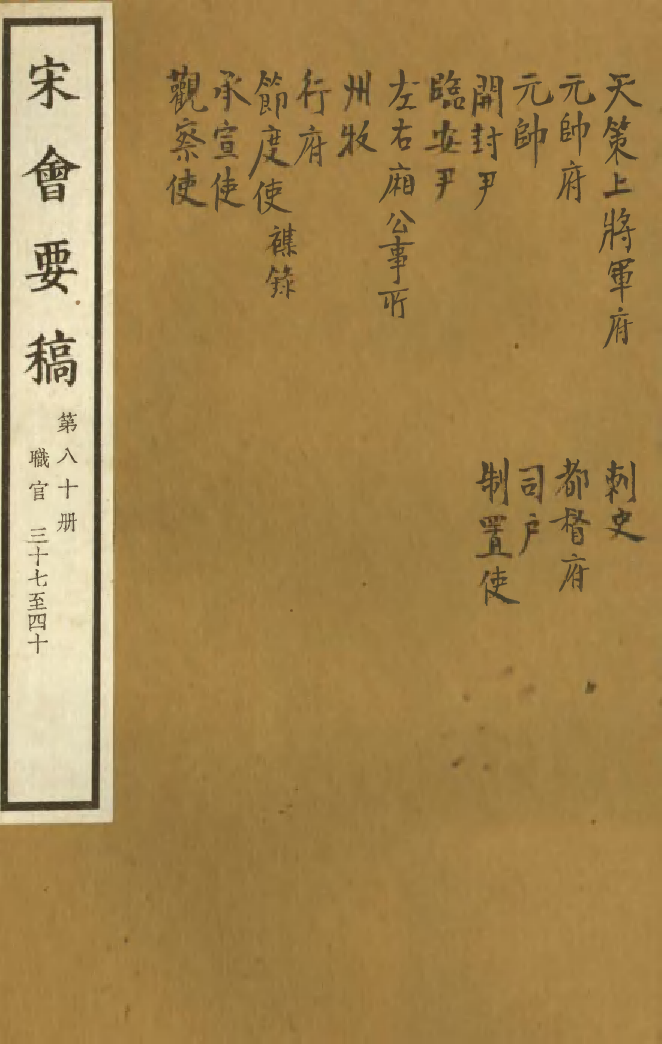 天策上將軍府
元帥府
元帥
開封尹
臨安尹
左右廂公事所
州牧
行府
節度使 襍錄
承宣使
觀察使
刺史
都督府
司户
制置使
宋會要稿
第八十册
職官 三十七至四十